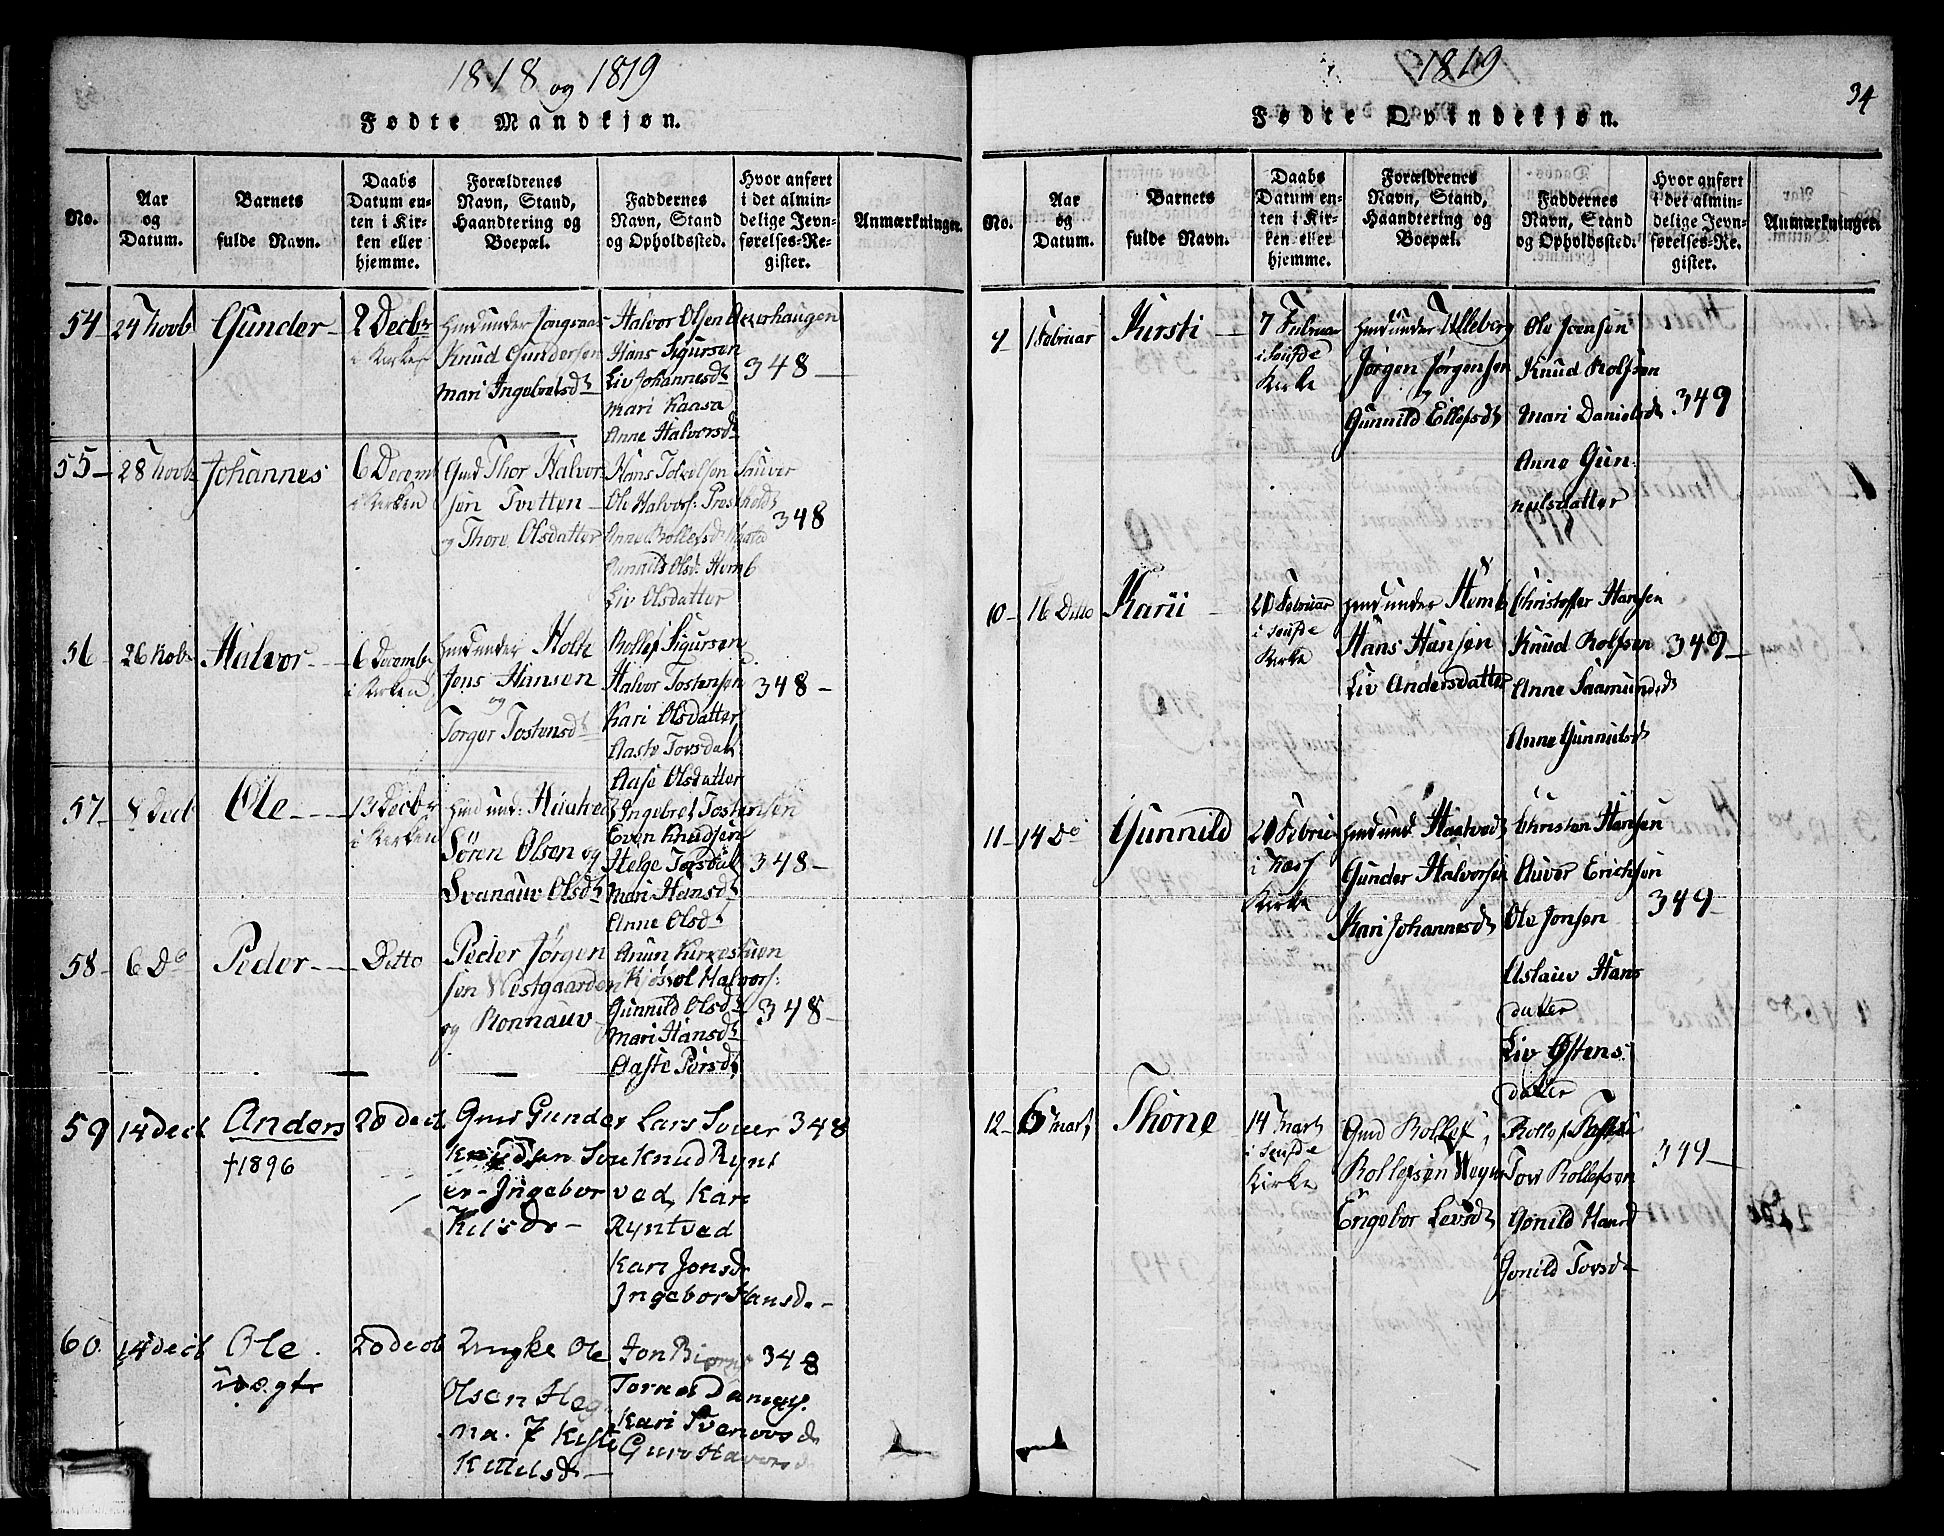 1818 og 1819
Fødte Mandkjøn.
No.
Aar
og
Datum.
Barnets
fulde Navn.
Daabs
Datum en-
ten i Kir-
ken eller
hjemme.
Forældrenes
Navn, Stand,
Haandtering og
Boepæl.
Faddernes
Navn, Stand
og Opholdssted.
Hvor anført
i det almin-
delige Jevn-
førelses-Re-
gister.
Anmærkninger.
54
24 Novb
Gunder
2 Decbr
i Kirken
Huusmd under
Knud Gundersen
Mari Ingebretsdt
Halvor Olsen Overhaugen
Hans Sigursen
Liv Johannesdt
Mari Kaasa
Anne Halvorsdt
348
55
28 Novb
Johannes
6 Decemb
i Kirken
Gmd Thor Halvor
sen Tvetten
og Thore Olsdatter
Hans Tovelsen Sauver
Ole Halvors:
Anne Rollefsd
Olsd: Hemb
Liv Olsdatter
348
56
26 Nob
Halvor
6 Decemb
i Kirken
under Holte
Jens Hansen
og
Torger Tostensdt
Rollef Sigursen
Halvor Tostensen
Kari Olsdatter
Aaste Torsdat
Aase Olsdatter
348
57
8 Decb
Ole
13 Decbr
i Kirken
und:
Søren Olsen og
Svanauv Olsdt
Ingebret Tostensen
Even Knudsen
Helge
Mari Hansdt
Anne Olsdt
348
58
6 Do
Peder
Ditto
Peder Jørgen
sen Westgaarden
og Ronnauv
Anun Kirkestuen
Kjøstol Halvors:
Gunnild Olsdt
Mari Hansdt
Aaste
348
59
14 decb
Anders
†1896
20 decb
Gmd Gunder
Knudsen Sou
er - Ingebor
Nilsdr
Lars Souer
Knud Rynt
ved, Kari
Ryntved
Kari Jonsdr
Ingebor Hansdr
348
60
14 decb
Ole
uægte
20 decb
Ungke Ole
Olsen Heg
na. 7 Kisti
Kittelsdr
Jon
Tornes
Kari Svenovsdr
Guro Havorsd
348
1819
34
Fødte Qvindekjøn.
No.
Aar
og
Datum.
Barnets
fulde Navn.
Daabs
Datum en-
ten i Kir-
ken eller
hjemme.
Forældrenes
Navn, Stand,
Haandtering og
Boepæl.
Faddernes
Navn, Stand
og Opholdssted.
Hvor anført
i det almin-
delige Jevn-
førelses-Re-
gister.
Anmærkninger.
9
1 Februar
Kirsti
7 Februar
i Soufde
Kirke
under Ulleberg
Jørgen Jørgensen
og
Gunnild Ellefsdt
Ole Joensen
Knud Rolfsen
Mari Danielsdt
Anne Gun
nulsdatter
349
10
16 Ditto
Karii
20 Februar
i Soufde
Kirke
under Hemb
Hans Hansen
Liv Andersdatter
Christoffer Hansen
Knud Rolfsen
Anne Saamundsdt
Anne Gunnulsdt
349
11
14 Do
Gunnild
20 Febru
i
Kirke
und Haatvedt
Gunder Halvorsen
Kari Johannesdt
Christen Hansen
Auver Erichsen
Ole Jonsen
Aslauv Hans
datter
Liv Østens
datter
349
12
6 Mart
Thone
14 Mart
i Soufde
Kirke
Gmd Rollef
Rollefsen
Engebor Levsdt
Rollef
Tov Rollefsen
Gonild
Gonild Tovsdr
349